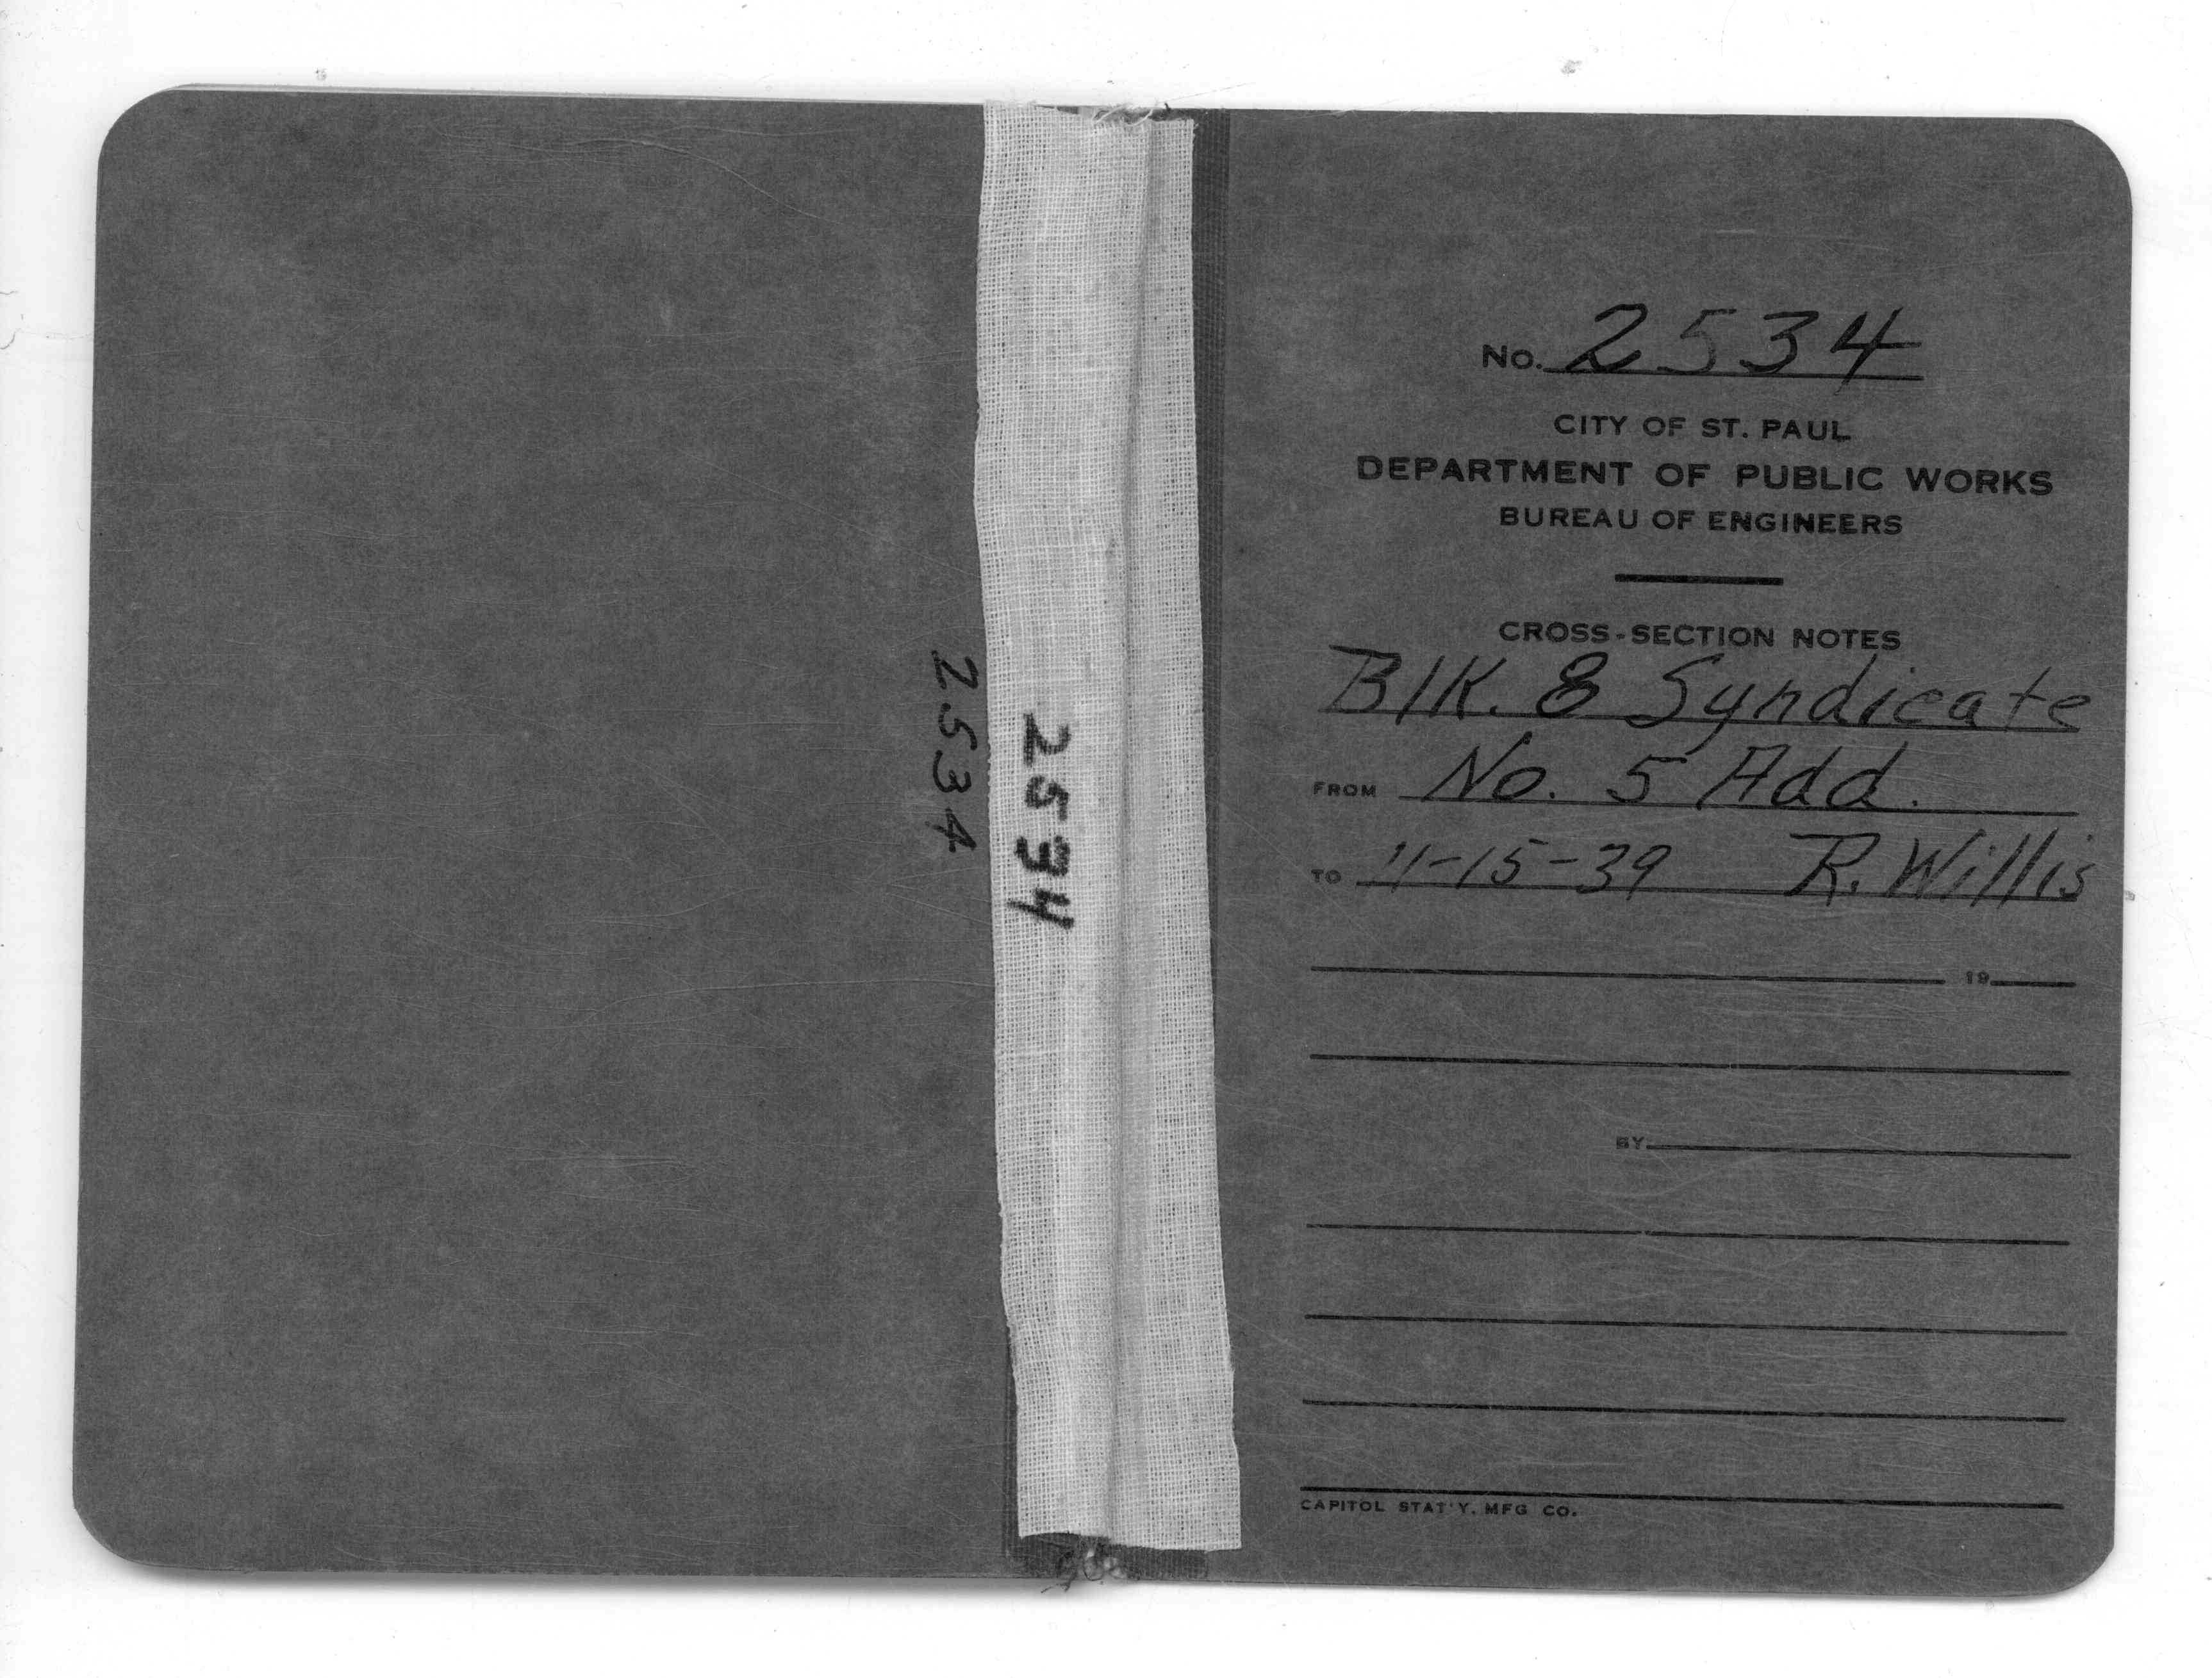 2534
2534
No. 2534
CITY OF ST. PAUL
DEPARTMENT OF PUBLIC WORKS
BUREAU OF ENGINEERS
CROSS-SECTION NOTES
Blk. 8 Syndicate
FROM No. 5 Add.
TO 11-15-39 R. Willis
19
BY
CAPITOL STAT'Y. MFG CO.